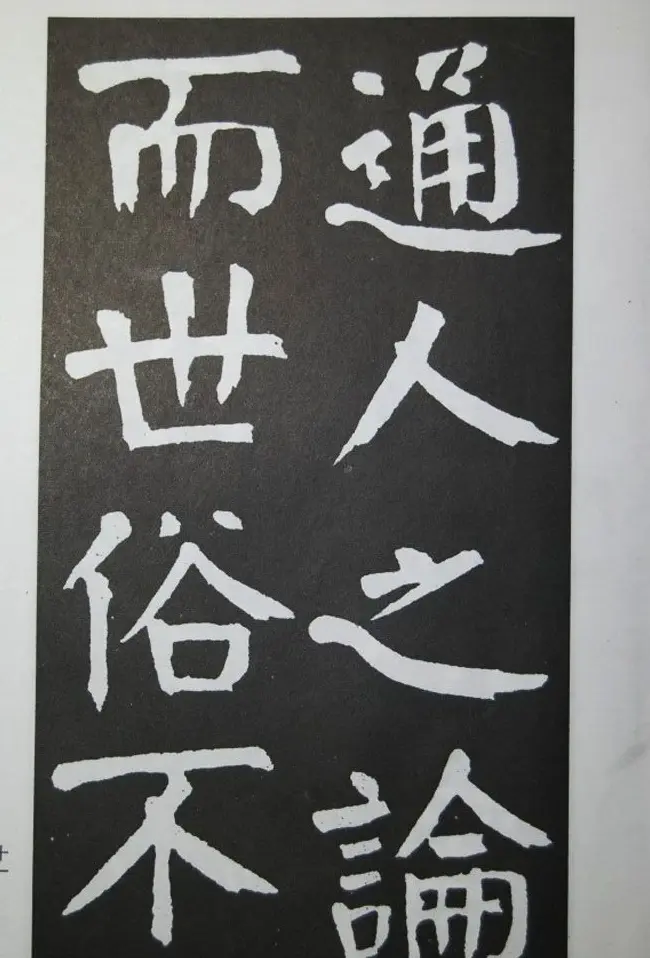 通人之論
而世俗不